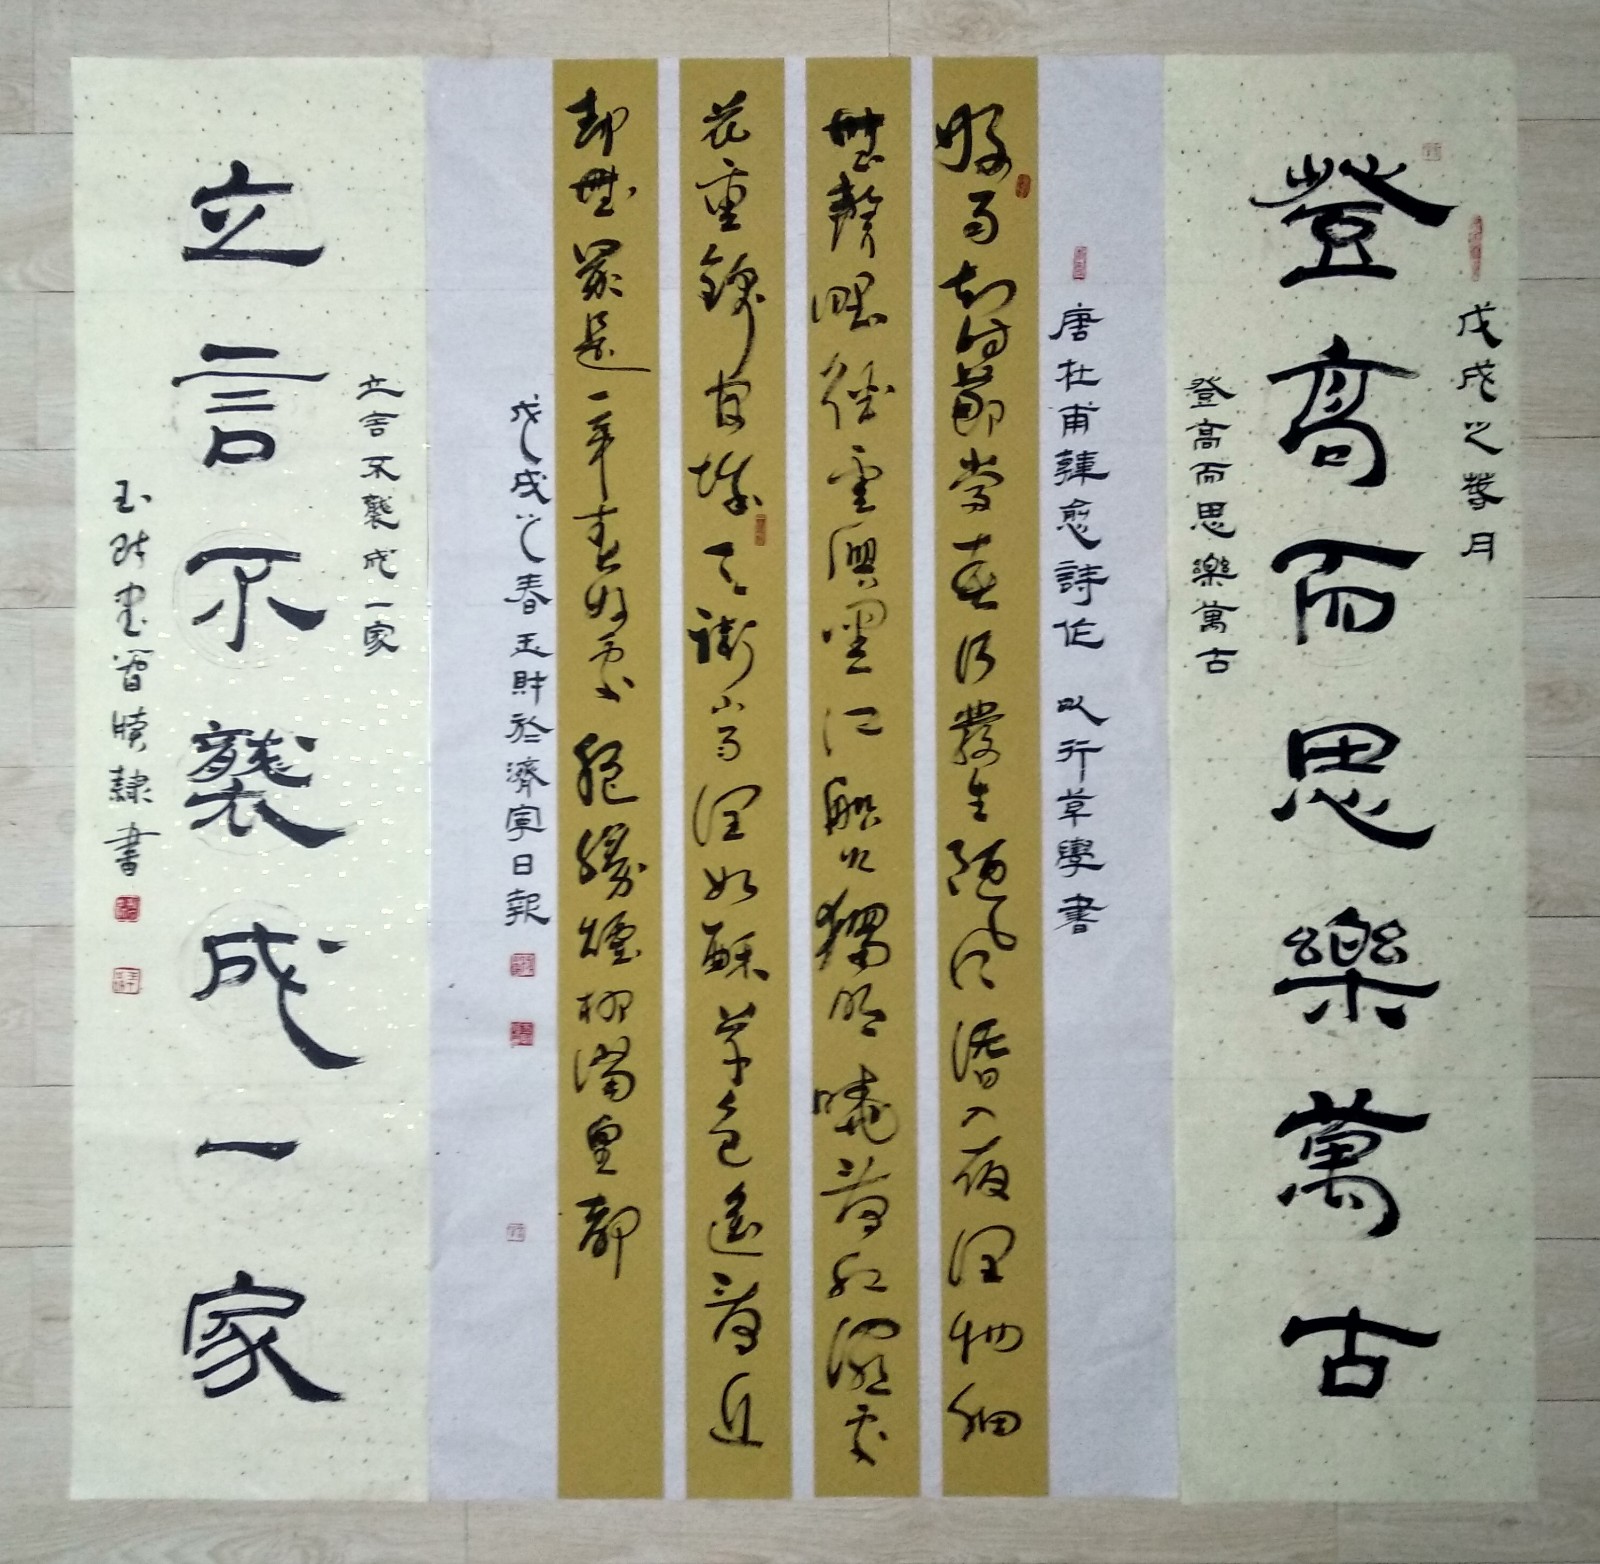 戊戌之月
登高而思樂萬古
登高而思樂萬古
唐杜甫韓愈詩作 以行草學書
好雨知時節當春乃發生隨風潛入夜潤物細
無聲野徑雲俱黑江船火獨明曉看紅濕處
花重錦官城天街小雨潤如酥草色遙看近
却無最是一年春好處絕勝煙柳滿皇都
戊戌之春玉財於濟寧日報
立言不襲成一家
立言不襲成一家
玉財牘隸書